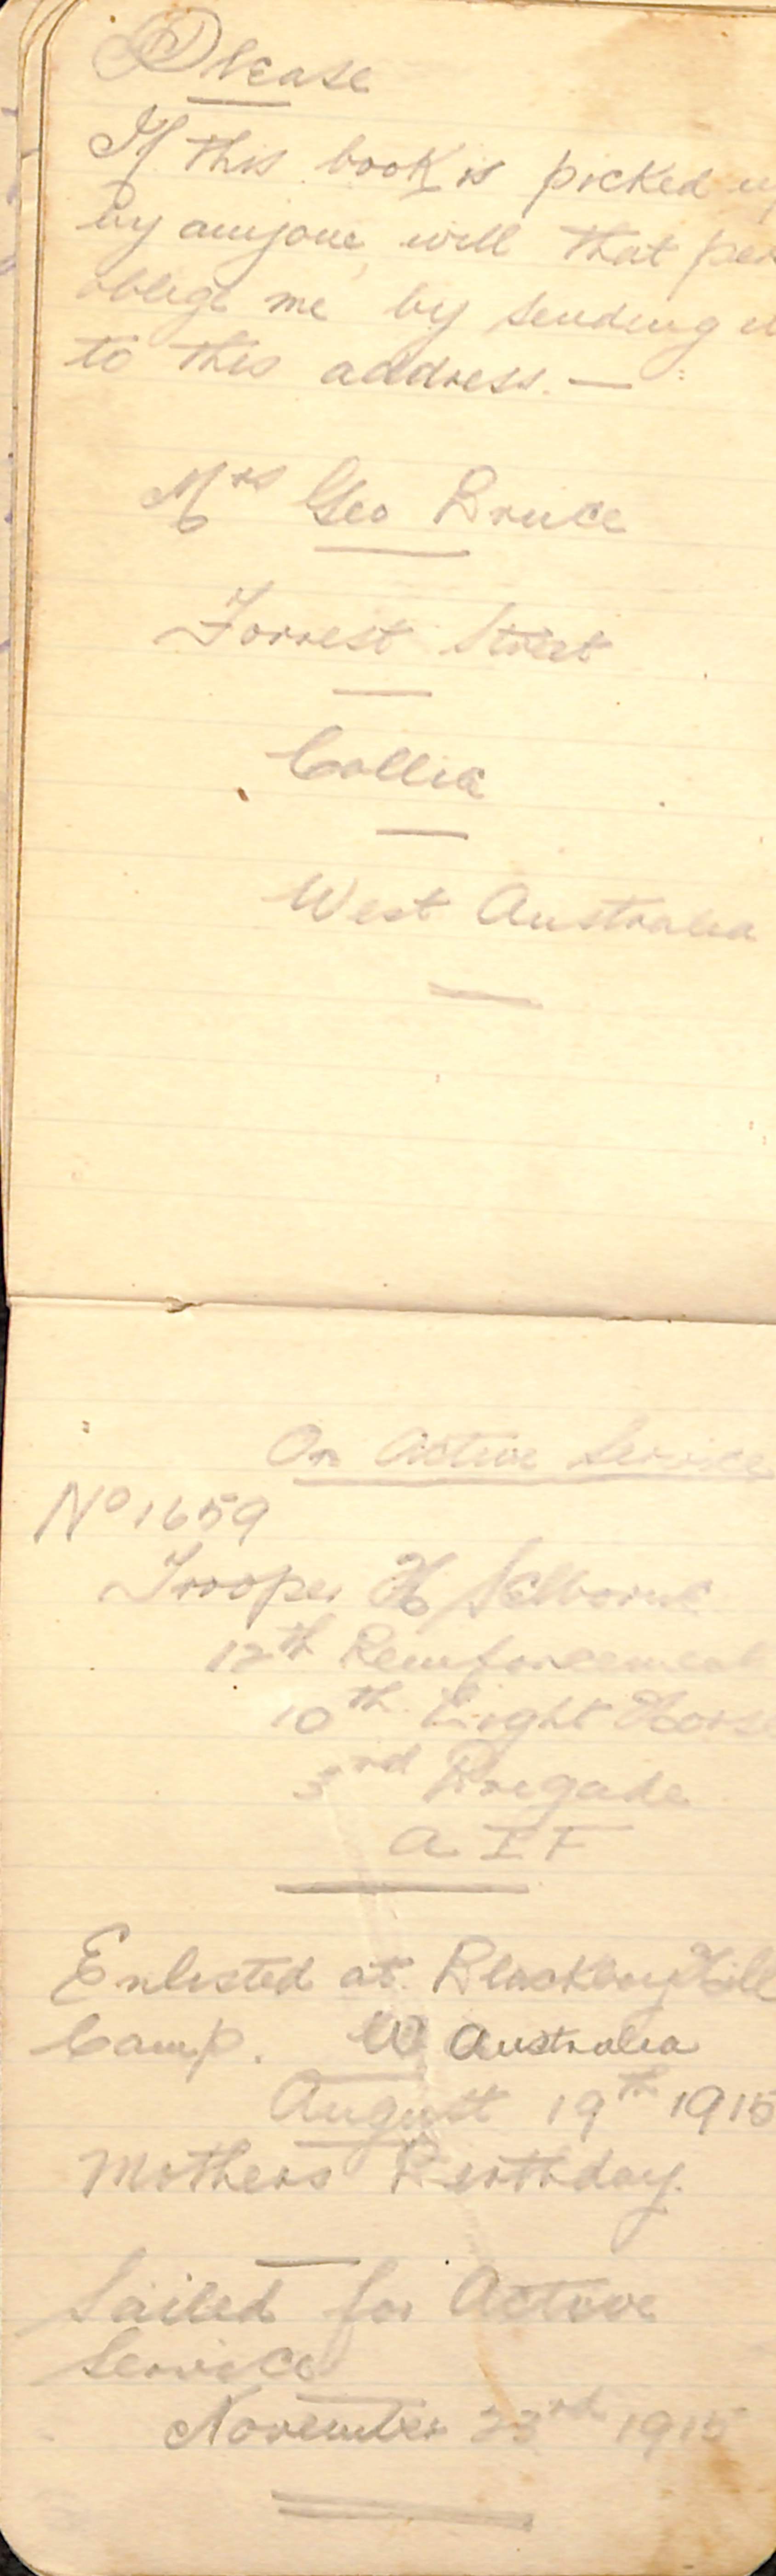 Please
If this book is picked up
by anyone, will that per
oblige me by sending it
to this address. —
Mrs Geo Bruce
Forrest Street
Collie
West Australia
On Active Service
No 1659
Trooper H Selborne
12th Reinforcement
10th Light Horse
3rd Brigade
A I F
Enlisted at Blackboy Hill
Camp. W Australia
August 19th 1915
Mothers Birthday.
Sailed for Active
Service
November 23rd 1915